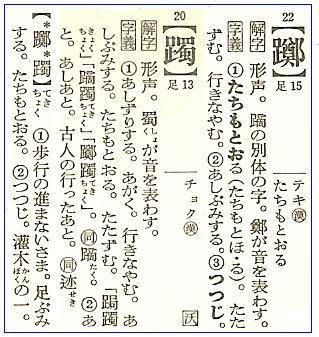 22
【躑】
足15
テキ漢
たちもとおる
解字 形声。蹢の別体の字。鄭が音を表わす。
字義 ①たちもとおる(たちもとほ・る)。たた
ずむ。行きなやむ。②あしぶみする。③つつじ。
20
【躅】
足13
チョク漢
沃
解字 形声。蜀しょくが音を表わす。
字義 ①あしずりする。あがく。行きなやむ。あ
しぶみする。たちもとおる。たたずむ。「跼躅
きょくちょく」「蹢躅てきちょく」「躑躅てきちょく」。同 ②あ
と。あしあと。古人の行ったあと。同迹せき
【*躑*躅】てきちょく ①歩行の進まないさま。足ぶみ
する。たちもとおる。②つつじ。灌木かんぼくの一。